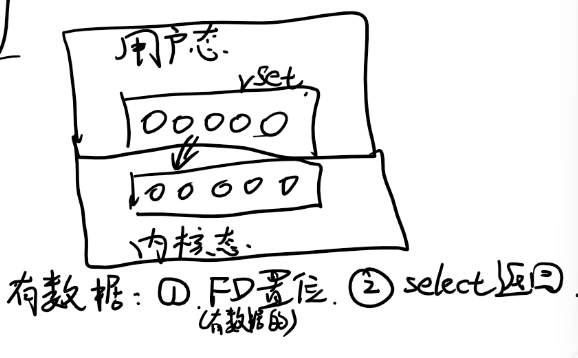 用户态.
rset.
00000
00000
内核态.
有数据: ① FD置位. ② select返回.
(有数据的)